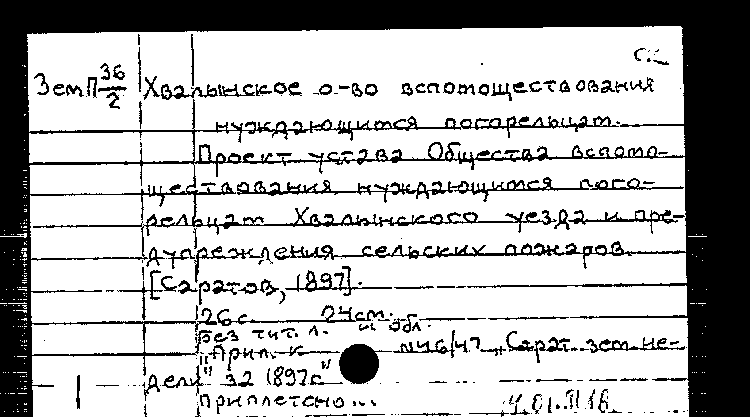 ЗемП 36/2 Хвалынское о-во вспомоществования
нуждающимся погорельцам.
Проект устава Общества вспомо-
ществования нуждающимся пого-
рельцам Хвалынского уезда и пре-
дупреждения сельских пожаров.
[Саратов, 1897].
26 с. 24 см.
Без тит. л. и обл.
"Прил. к №46/47 „Сарат. зем. не-
дели" за 1897 г"
Приплетено...